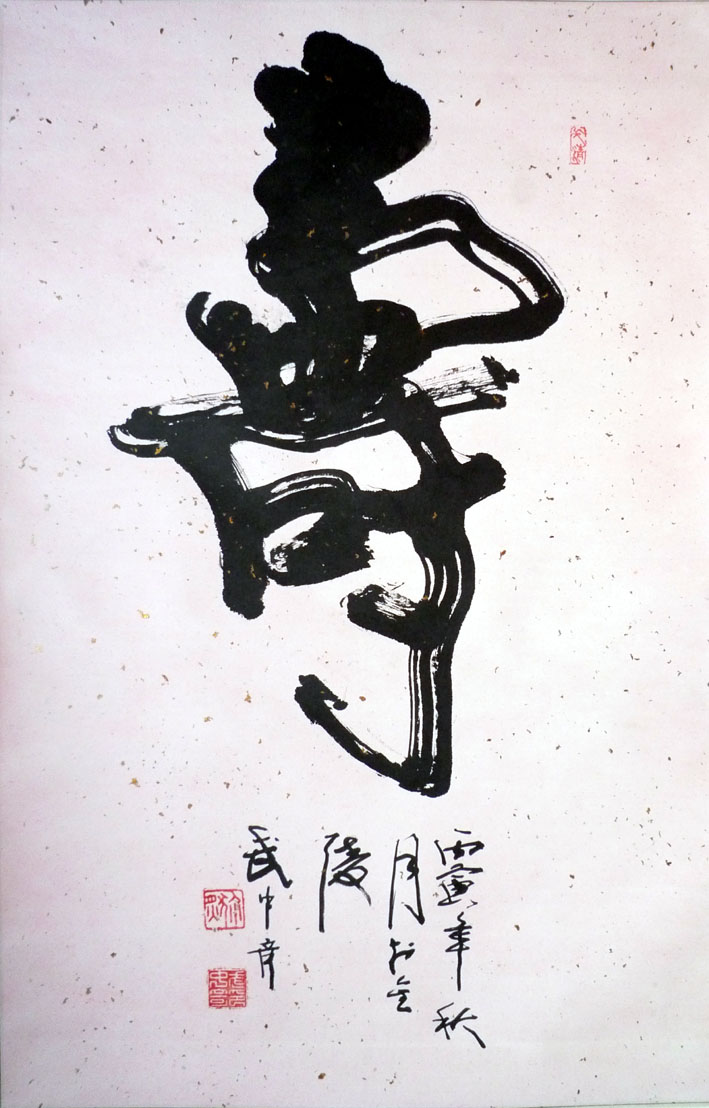 壽
丙寅年秋
月於金
陵
武中奇